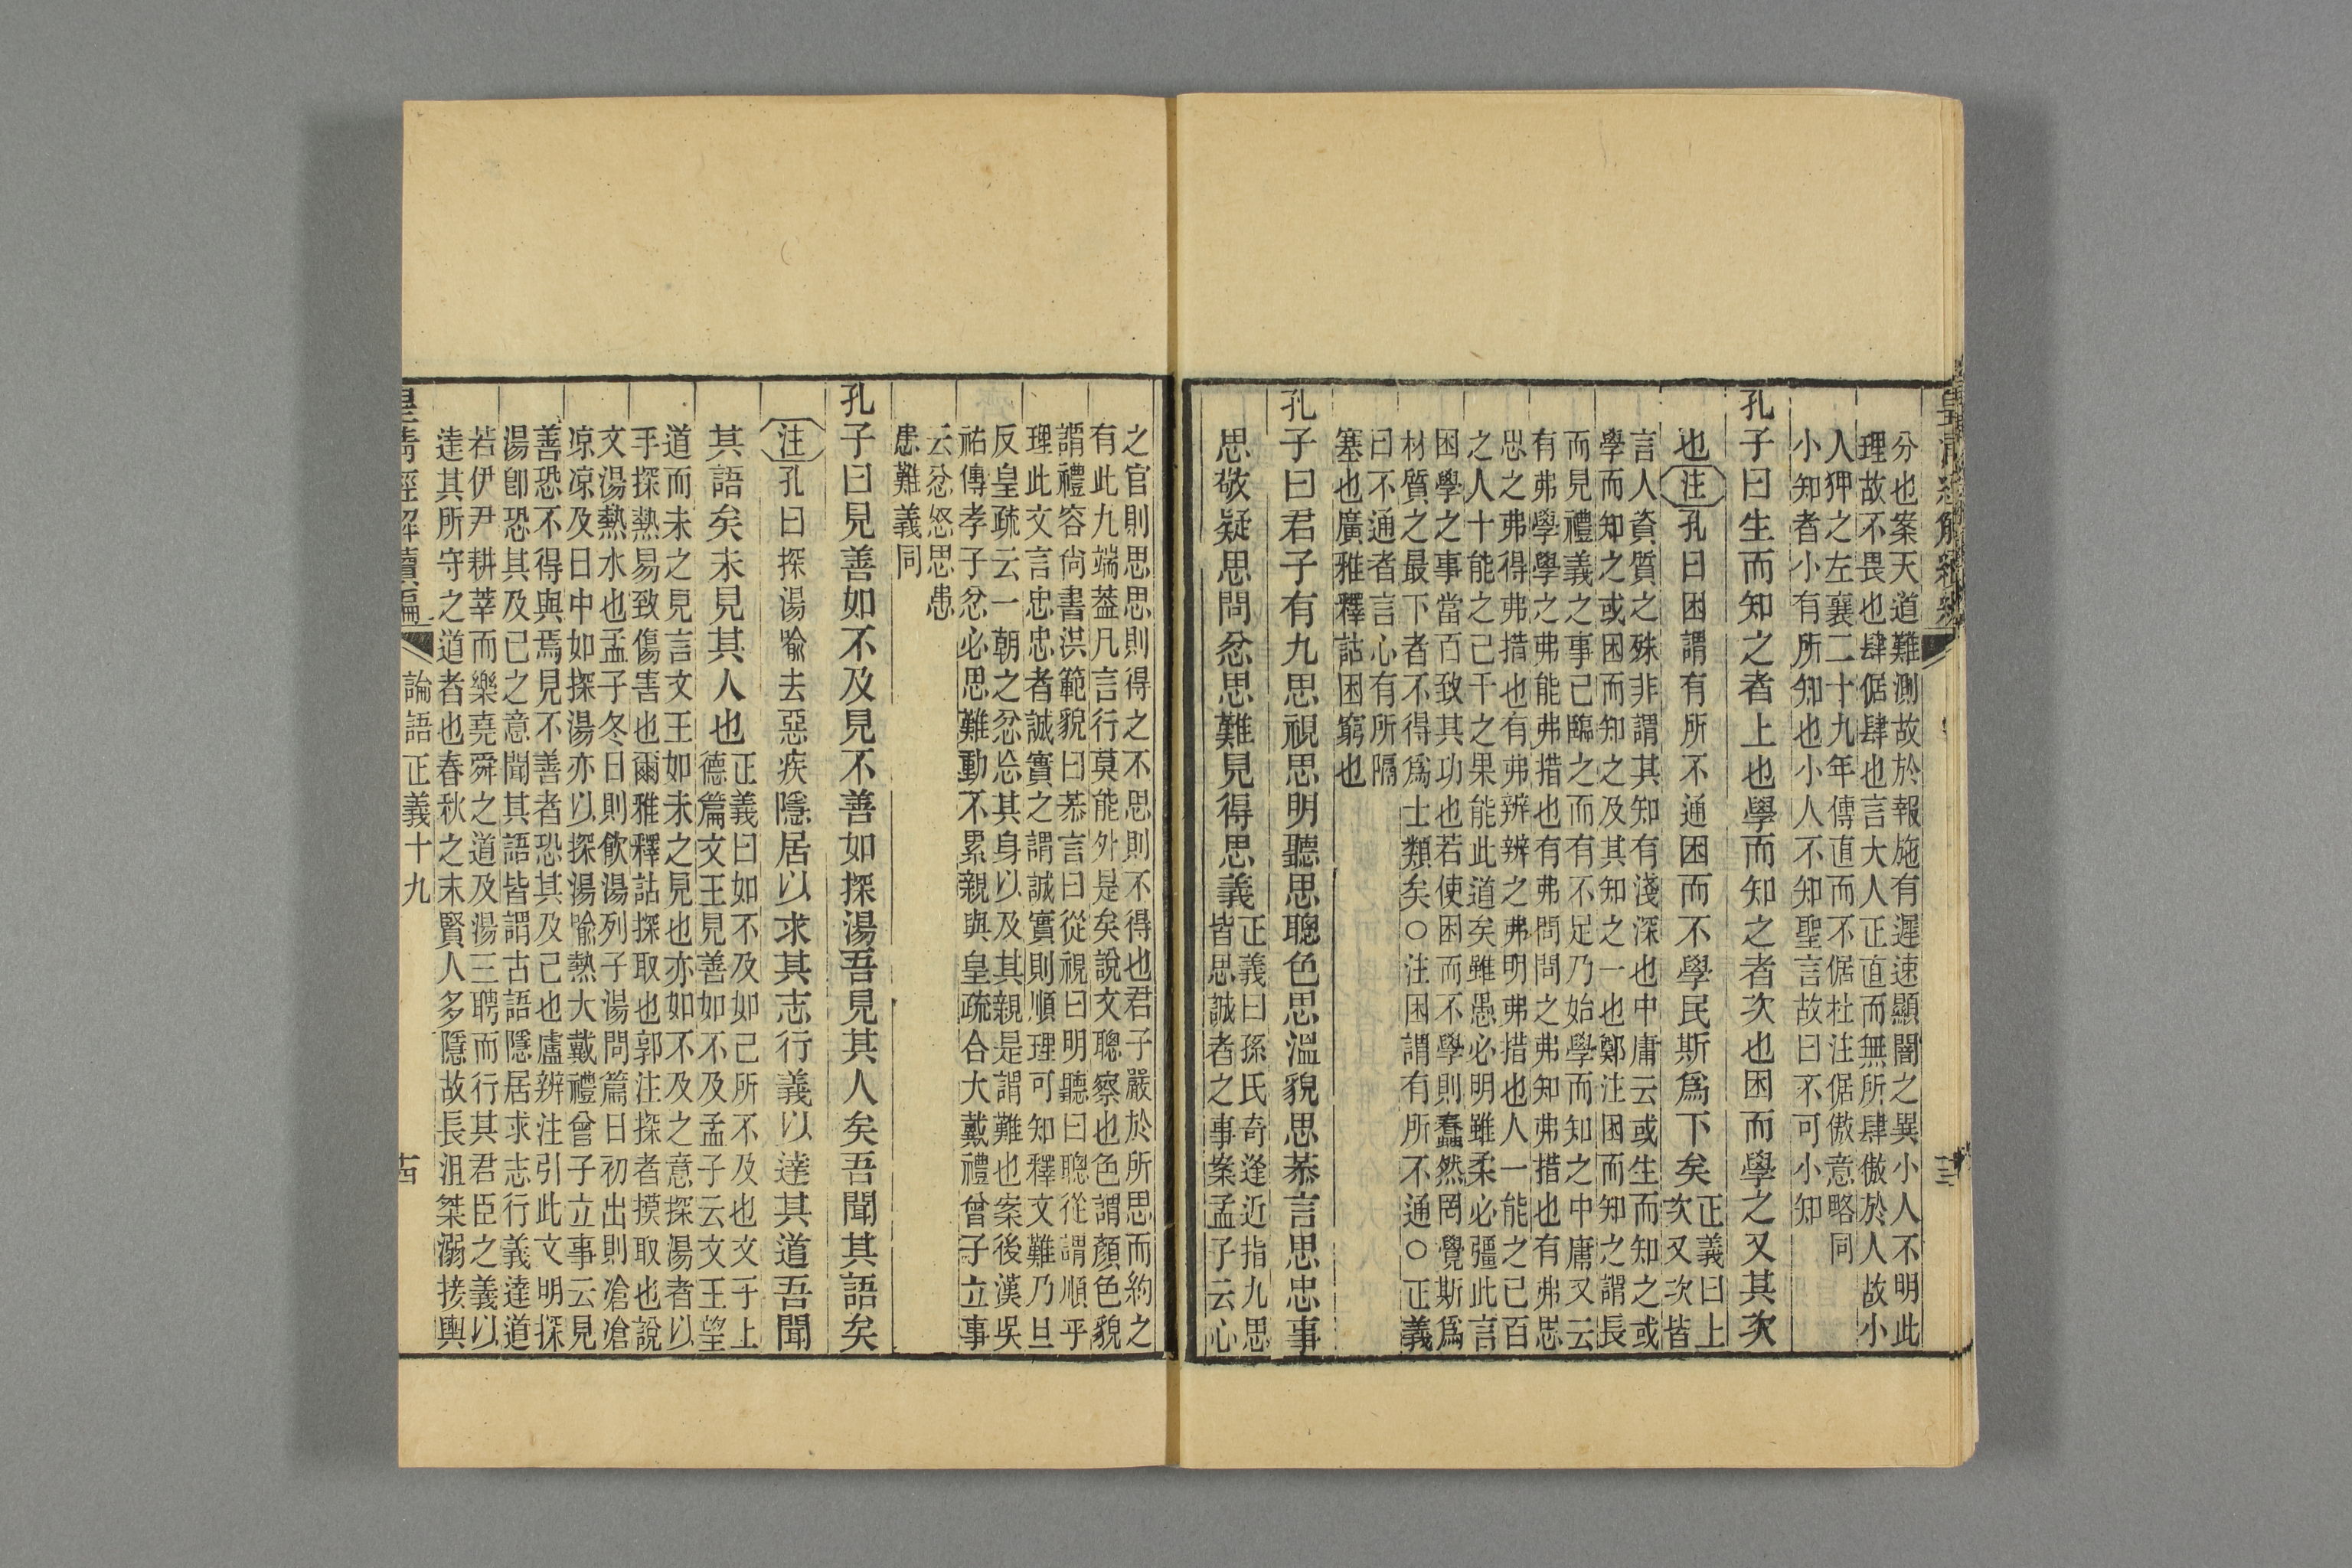 分也案天道難測故於報施有遲速顯闇之異小人不明此
理故不畏也肆倨肆也言大人正直而無所肆傲於人故小
人狎之左襄二十九年傳直而不倨杜注倨傲意略同
小知者小有所知也小人不知聖言故曰不可小知
孔子曰生而知之者上也學而知之者次也困而學之又其次
也注孔曰困謂有所不通困而不學民斯爲下矣
正義曰上
次又次皆
言人資質之殊非謂其知有淺深也中庸云或生而知之或
學而知之或困而知之及其知之一也鄭注困而知之謂長
而見禮義之事己臨之而有不足乃始學而知之中庸又云
有弗學學之弗能弗措也有弗問問之弗知弗措也有弗思
思之弗得弗措也有弗辨辨之弗明弗措也人一能之己百
之人十能之己千之果能此道矣雖愚必明雖柔必彊此言
困學之事當百致其功也若使困而不學則蠢然罔覺斯爲
材質之最下者不得爲士類矣○注困謂有所不通○正義
曰不通者言心有所隔
塞也廣雅釋詁困窮也
孔子曰君子有九思視思明聽思聰色思溫貌思恭言思忠事
思敬疑思問忿思難見得思義
正義曰孫氏奇逢近指九思
皆思誠者之事案孟子云心
之官則思思則得之不思則不得也君子嚴於所思而約之
有此九端葢凡言行莫能外是矣說文聰察也色謂顏色貌
謂禮容尙書洪範貌曰恭言曰從視曰明聽曰聰從謂順乎
理此文言忠忠者誠實之謂誠實則順理可知釋文難乃旦
反皇疏云一朝之忿忘其身以及其親是謂難也案後漢吳
祐傳孝子忿必思難動不累親與皇疏合大戴禮曾子立事
云忿怒思患
患難義同
孔子曰見善如不及見不善如探湯吾見其人矣吾聞其語矣
注孔曰探湯喻去惡疾隱居以求其志行義以達其道吾聞
其語矣未見其人也
正義曰如不及如己所不及也文子上
德篇文王見善如不及孟子云文王望
道而未之見言文王如未之見也亦如不及之意探湯者以
手探熱易致傷害也爾雅釋詁探取也郭注探者摸取也說
文湯熱水也孟子冬日則飮湯列子湯問篇日初出則滄滄
凉凉及日中如探湯亦以探湯喻熱大戴禮曾子立事云見
善恐不得與焉見不善者恐其及己也盧辨注引此文明探
湯卽恐其及己之意聞其語皆謂古語隱居求志行義達道
若伊尹耕莘而樂堯舜之道及湯三聘而行其君臣之義以
達其所守之道者也春秋之末賢人多隱故長沮桀溺接輿
皇淸經解續編
論語正義十九